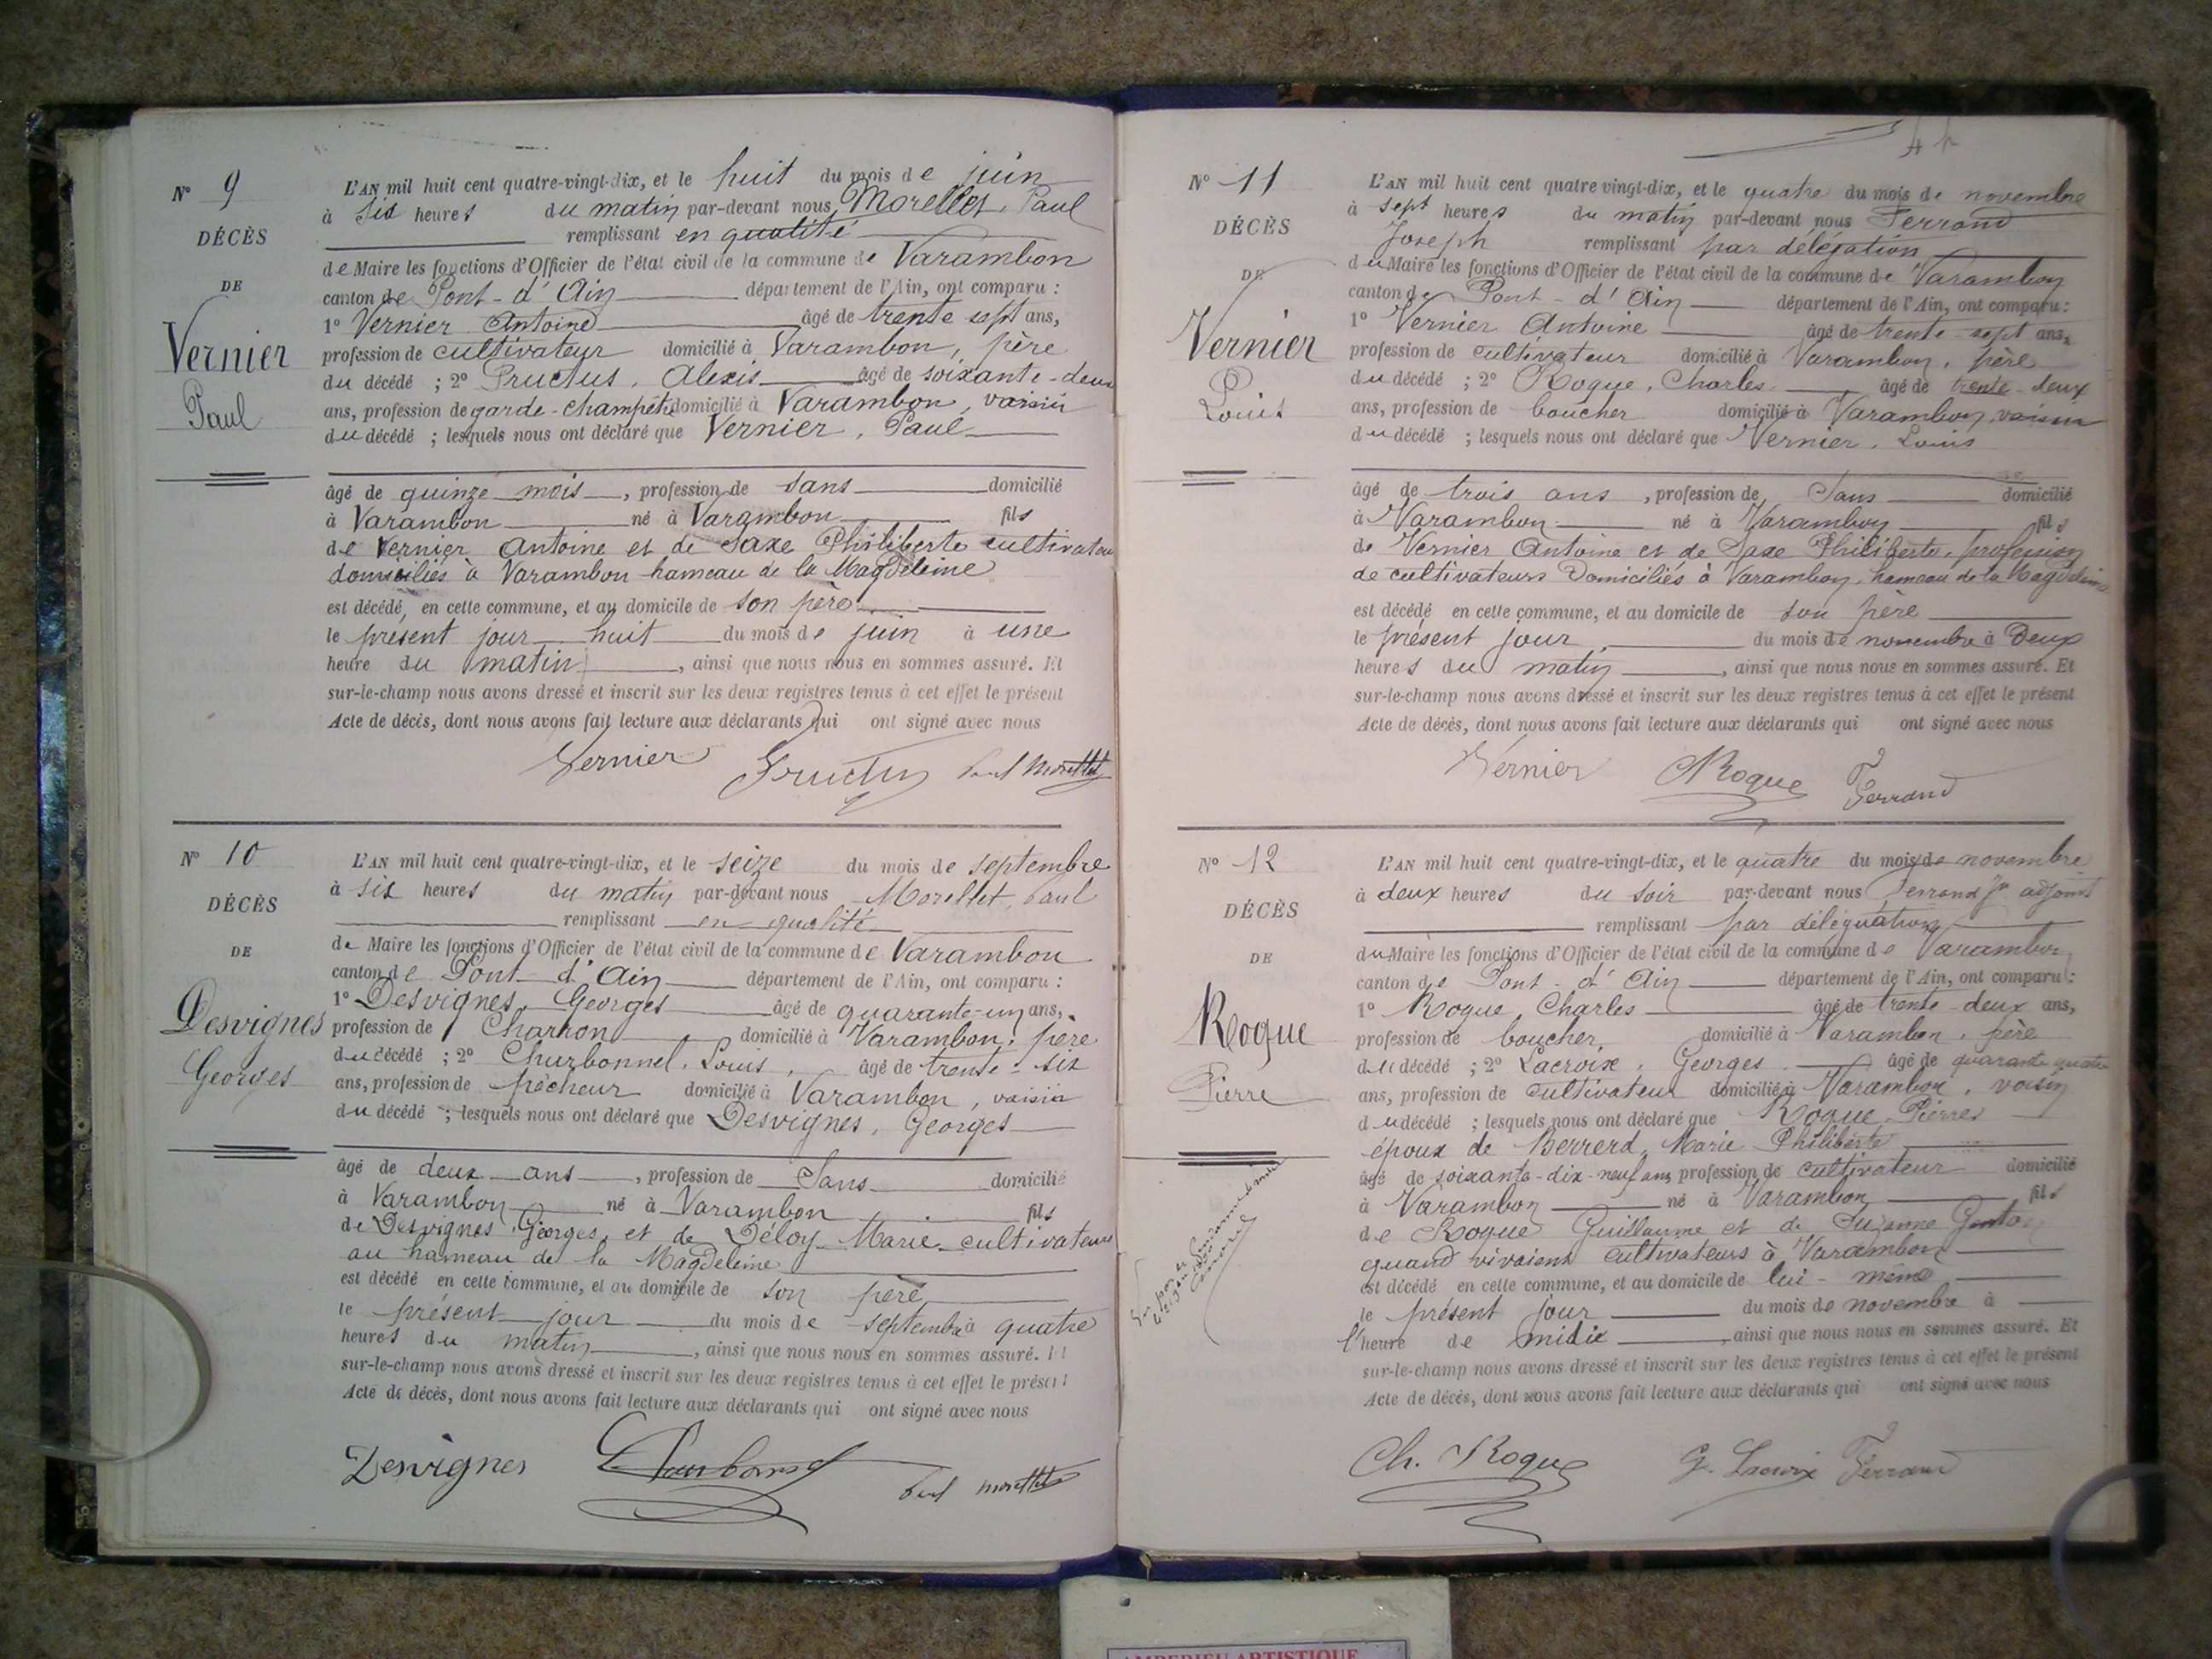 N° 9
DÉCÈS
DE
Vernier
Paul
L'AN mil huit cent quatre-vingt-dix, et le huit du mois de juin
à six heures du matin par-devant nous Morellet, Paul
remplissant en qualité
de Maire les fonctions d'Officier de l'état civil de la commune de Varambon
canton de Pont-d'Ain département de l'Ain, ont comparu :
1° Vernier Antoine âgé de trente sept ans,
profession de cultivateur domicilié à Varambon, père
du décédé ; 2° Fructus, Alexis âgé de soixante-deux
ans, profession de garde-champêtre domicilié à Varambon, voisin
du décédé ; lesquels nous ont déclaré que Vernier, Paul
âgé de quinze mois, profession de sans domicilié
à Varambon né à Varambon fils
de Vernier Antoine et de Saxe Philiberte cultivateurs
domiciliés à Varambon hameau de la Magdeleine
est décédé, en cette commune, et au domicile de son père
le présent jour huit du mois de juin à une
heure du matin, ainsi que nous nous en sommes assuré. Et
sur-le-champ nous avons dressé et inscrit sur les deux registres tenus à cet effet le présent
Acte de décès, dont nous avons fait lecture aux déclarants qui ont signé avec nous
Vernier Fructus Paul Morellet
N° 10
DÉCÈS
DE
Desvignes
Georges
L'AN mil huit cent quatre-vingt-dix, et le seize du mois de septembre
à six heures du matin par-devant nous Morellet, Paul
remplissant en qualité
de Maire les fonctions d'Officier de l'état civil de la commune de Varambon
canton de Pont-d'Ain département de l'Ain, ont comparu :
1° Desvignes, Georges âgé de quarante-un ans,
profession de Charron domicilié à Varambon, père
du décédé ; 2° Churbonnel, Louis, âgé de trente-six
ans, profession de pêcheur domicilié à Varambon, voisin
du décédé ; lesquels nous ont déclaré que Desvignes, Georges
âgé de deux ans, profession de Sans domicilié
à Varambon né à Varambon fils
de Desvignes, Georges, et de Déloy Marie cultivateurs
au hameau de la Magdeleine
est décédé en cette commune, et au domicile de son père
le présent jour du mois de septembre à quatre
heures du matin, ainsi que nous nous en sommes assuré. Et
sur-le-champ nous avons dressé et inscrit sur les deux registres tenus à cet effet le présent
Acte de décès, dont nous avons fait lecture aux déclarants qui ont signé avec nous
Desvignes Paul Morellet
N° 11
DÉCÈS
DE
Vernier
Louis
L'AN mil huit cent quatre vingt-dix, et le quatre du mois de novembre
à sept heures du matin par-devant nous Ferrand
Joseph remplissant par délégation
du Maire les fonctions d'Officier de l'état civil de la commune de Varambon
canton de Pont-d'Ain département de l'Ain, ont comparu :
1° Vernier Antoine âgé de trente-sept ans,
profession de cultivateur domicilié à Varambon, père
du décédé ; 2° Roque, Charles âgé de trente-deux
ans, profession de boucher domicilié à Varambon, voisin
du décédé ; lesquels nous ont déclaré que Vernier, Louis
âgé de trois ans, profession de Sans domicilié
à Varambon né à Varambon fils
de Vernier Antoine et de Saxe Philiberte, profession
de cultivateurs domiciliés à Varambon, hameau de la Magdeleine
est décédé en cette commune, et au domicile de son père
le présent jour, du mois de novembre à deux
heures du matin, ainsi que nous nous en sommes assuré. Et
sur-le-champ nous avons dressé et inscrit sur les deux registres tenus à cet effet le présent
Acte de décès, dont nous avons fait lecture aux déclarants qui ont signé avec nous
Vernier Roque Ferrand
N° 12
DÉCÈS
DE
Roque
Pierre
L'AN mil huit cent quatre-vingt-dix, et le quatre du mois de novembre
à deux heures du soir par-devant nous Ferrand Jh adjoint
remplissant par délégation
du Maire les fonctions d'Officier de l'état civil de la commune de Varambon
canton de Pont-d'Ain département de l'Ain, ont comparu :
1° Roque, Charles âgé de trente-deux ans,
profession de boucher, domicilié à Varambon, père
du décédé ; 2° Lacroix, Georges âgé de quarante quatre
ans, profession de cultivateur domicilié à Varambon, voisin
du décédé ; lesquels nous ont déclaré que Roque, Pierre
époux de Berrerd, Marie Philiberte
âgé de soixante-dix-neuf ans, profession de cultivateur domicilié
à Varambon né à Varambon fils
de Roque Guillaume et de Suzanne
quand vivaient cultivateurs à Varambon
est décédé en cette commune, et au domicile de lui-même
le présent jour du mois de novembre à
l'heure de midie, ainsi que nous nous en sommes assuré. Et
sur-le-champ nous avons dressé et inscrit sur les deux registres tenus à cet effet le présent
Acte de décès, dont nous avons fait lecture aux déclarants qui ont signé avec nous
Ch. Roque G. Lacroix Ferrand
AMBERIEU ARTISTIQUE